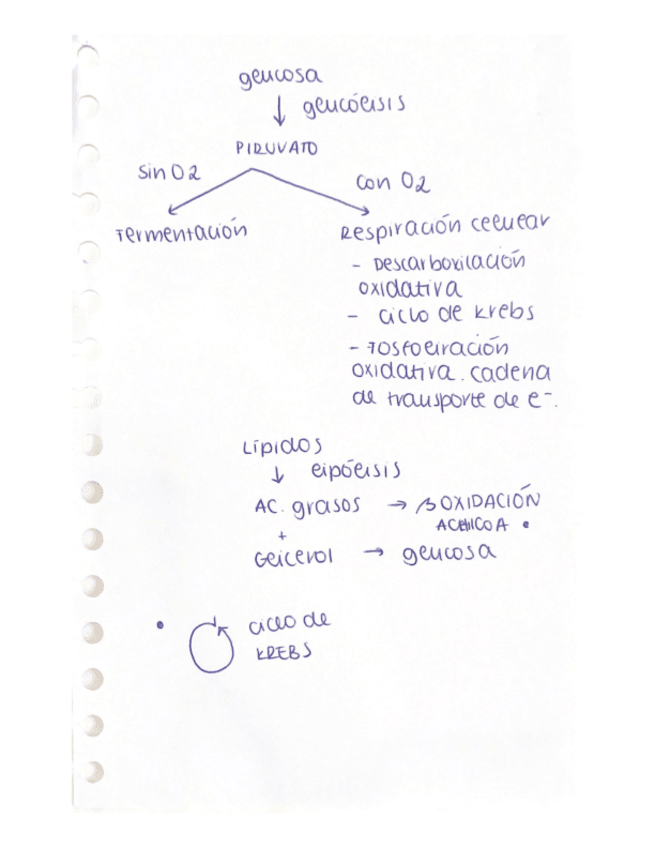 glucosa
↓ glucólisis
PIRUVATO
sin O2
con O2
Fermentación
Respiración celular
- Descarboxilación
oxidativa
- ciclo de krebs
- Fosforilación
oxidativa. cadena
de transporte de e-.
Lípidos
↓ lipólisis
AC. grasos → β OXIDACIÓN
+
Glicerol → glucosa
• ciclo de
KREBS